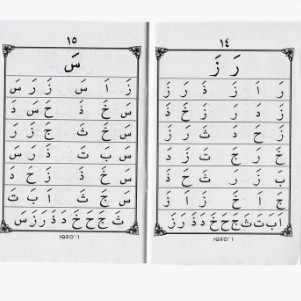 ١٤
رَ زَ
رَ اَ زَ ذَ رَ زَ
زَ دَ رَ زَ خَ ذَ
زَ حَ دَ ثَ رَ زَ
خَ رَ جَ تَ زَ دَ
بَ زَ رَ حَ ثَ ذَ
جَ اَ خَ زَ اَ زَ
اَ بَ تَ ثَ جَ حَ خَ دَ ذَ رَ زَ
IQRO' 1
١٥
سَ
زَ اَ سَ زَ رَ سَ
سَ خَ ذَ حَ سَ دَ
سَ خَ ثَ جَ زَ رَ
سَ بَ تَ ذَ رَ سَ
سَ خَ ذَ زَ حَ دَ
سَ جَ ثَ اَ بَ تَ
ثَ جَ حَ خَ دَ ذَ رَ زَ سَ
IQRO' 1